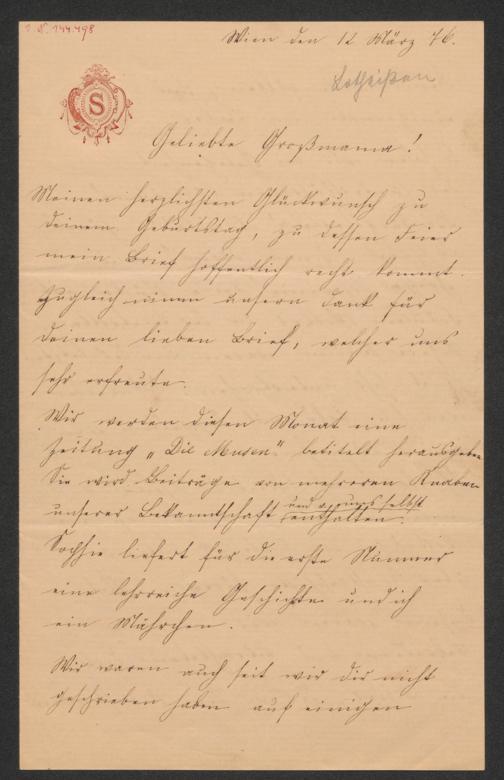 I. N. 144.498
Wien den 12 März 76.
Lotheißen
S
Geliebte Großmama!
Meinen herzlichsten Glückwunsch zu
deinem Geburtstag, zu dessen Feier
mein Brief hoffentlich recht kommt.
Zugleich nimm unsern Dank für
deinen lieben Brief, welcher uns
sehr erfreute.
Wir werden diesen Monat eine
Zeitung „Die Musen" betitelt herausgeben
Sie wird Beiträge von mehreren Knaben
und von uns selbst
unserer Bekanntschaft enthalten.
Sophie liefert für die erste Nummer
eine lehrreiche Geschichte und ich
ein Mährchen.
Wir waren auch seit wir dir nicht
geschrieben haben auf einigen